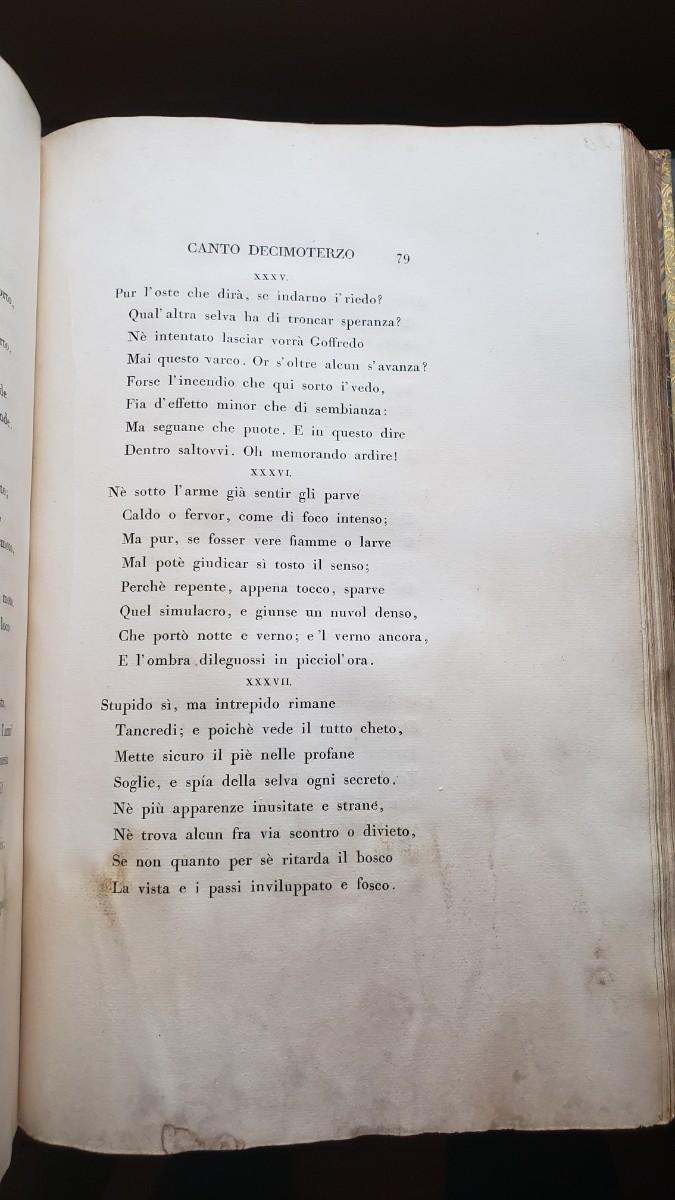 CANTO DECIMOTERZO 79
XXXV.
Pur l'oste che dirà, se indarno i' riedo?
Qual' altra selva ha di troncar speranza?
Nè intentato lasciar vorrà Goffredo
Mai questo varco. Or s'oltre alcun s'avanza?
Forse l'incendio che qui sorto i' vedo,
Fia d'effetto minor che di sembianza:
Ma seguane che puote. E in questo dire
Dentro saltovvi. Oh memorando ardire!
XXXVI.
Nè sotto l'arme già sentir gli parve
Caldo o fervor, come di foco intenso;
Ma pur, se fosser vere fiamme o larve
Mal potè giudicar sì tosto il senso;
Perchè repente, appena tocco, sparve
Quel simulacro, e giunse un nuvol denso,
Che portò notte e verno; e 'l verno ancora,
E l'ombra dileguossi in picciol'ora.
XXXVII.
Stupido sì, ma intrepido rimane
Tancredi; e poichè vede il tutto cheto,
Mette sicuro il piè nelle profane
Soglie, e spía della selva ogni secreto.
Nè più apparenze inusitate e strane,
Nè trova alcun fra via scontro o divieto,
Se non quanto per sè ritarda il bosco
La vista e i passi inviluppato e fosco.